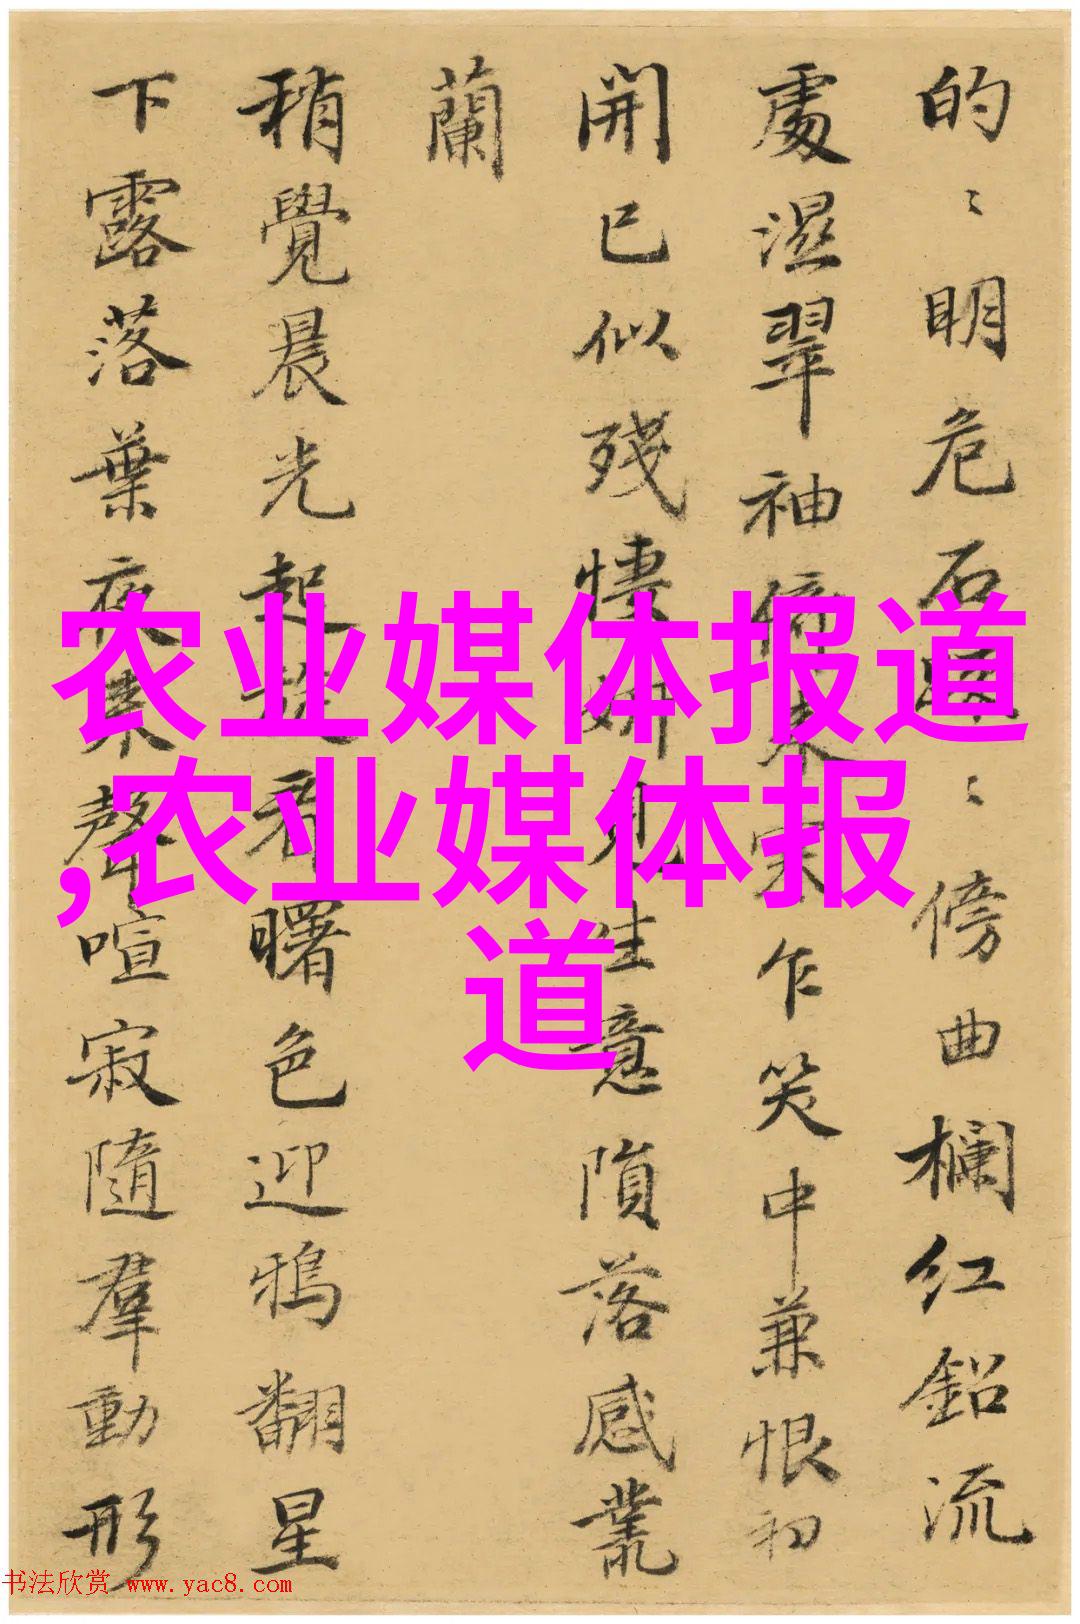 的〻明危石〻傍曲欄红鉛流
處濕翠袖倚来乍笑中兼恨初
開已似殘悽妍見生意隕落感叢
蘭
稍覺晨光起看曙色迎鴉翻星
下露落葉夜来聲喧寂隨羣動形
农业媒体报道
,农业媒体报
道
书法欣赏 www.yac8.com